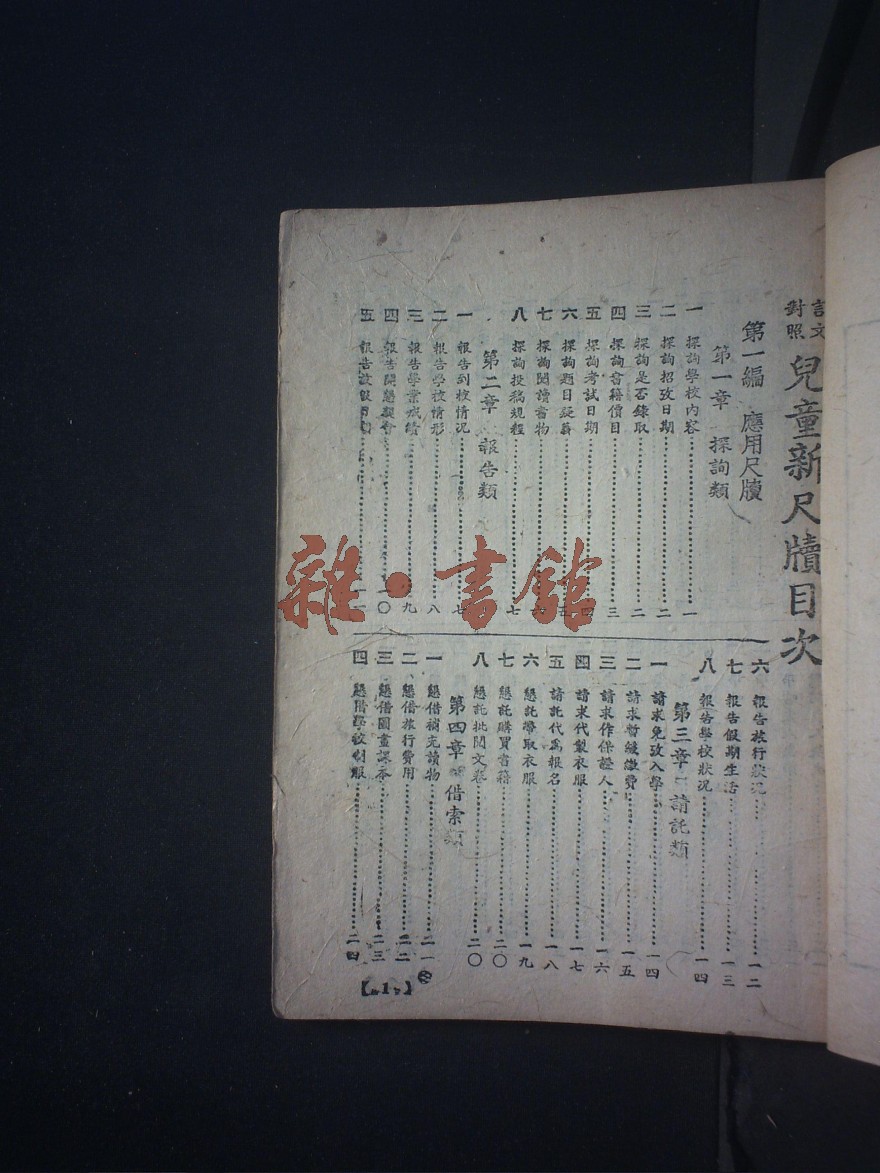 言文對照 兒童新尺牘目次
第一編 應用尺牘
第一章 探詢類
一 探詢學校內容 一
二 探詢招攷日期 二
三 探詢是否錄取 二
四 探詢書籍價目 三
五 探詢考試日期 四
六 探詢題目疑義 五
七 探詢閱讀書物
八 探詢投稿規程 七
第二章 報告類
一 報告到校情况 七
二 報告學校情形 八
三 報告學業成績 九
四 報告開懇親會 一〇
五 報告放假日期
六 報告旅行狀况 一二
七 報告假期生活 一三
八 報告學校狀况 一四
第三章 請託類
一 請求免攷入學 一四
二 請求暫緩繳費 一五
三 請求作保證人 一六
四 請求代製衣服 一七
五 請託代為報名 一八
六 懇託帶取衣服 一九
七 懇託購買書籍 二〇
八 懇託批閱文卷 二〇
第四章 借索類
一 懇借補充讀物 二一
二 懇借旅行費用 二二
三 懇借圖畫課本 二三
四 懇借學校制服 二四
【1】
雜·書館